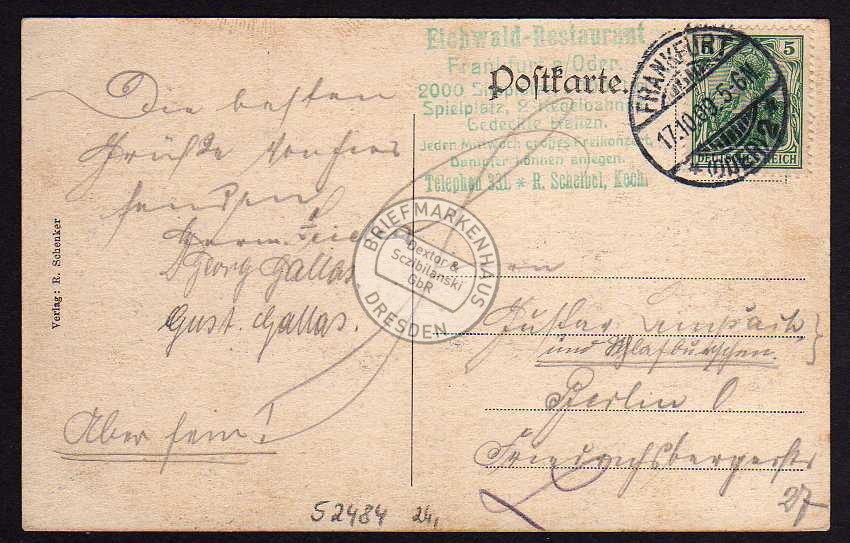 Eichwald-Restaurant
Frankfurt a/Oder.
2000
Spielplatz, 2 Kegelbahnen
Gedeckte Hallen.
Jeden Mittwoch großes Freikonzert
Dampfer können anlegen.
Telephon 331. * R. Scheibel, Koch.
Postkarte.
5
DEUTSCHES REICH
FRANKFURT
17.10.09.5-6N
* (ODER) 2 *
Die besten
Grüße von hier
senden
Herm.
Georg Gallas
Gust. Gallas.
Aber fein!
Verlag: R. Schenker
BRIEFMARKENHAUS
Dextor &
Sczibilanski
GbR
DRESDEN
Gustav
und Schlafburschen.
Berlin O
Friedrichsbergerstr
27
52484 24,